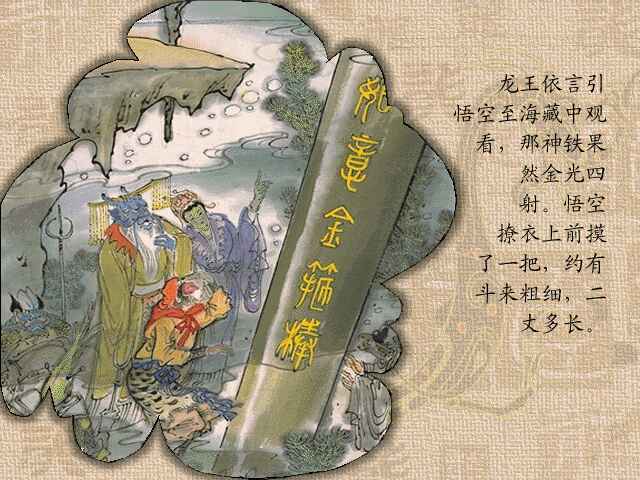 如意金箍棒
龙王依言引
悟空至海藏中观
看，那神铁果
然金光四
射。悟空
撩衣上前摸
了一把，约有
斗来粗细，二
丈多长。